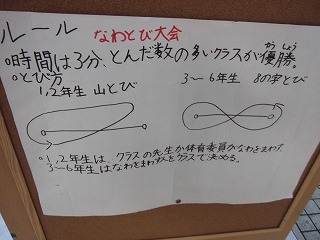 ルール
なわとび大会
○時間は3分、とんだ数の多いクラスが優勝。
かっしょう
○とび方
1,2年生 山とび
3～6年生 8の字とび
○1,2年生は、クラスの先生か体育委員がなわをまわす。
3～6年生はなわをまわす人をクラスで決める。